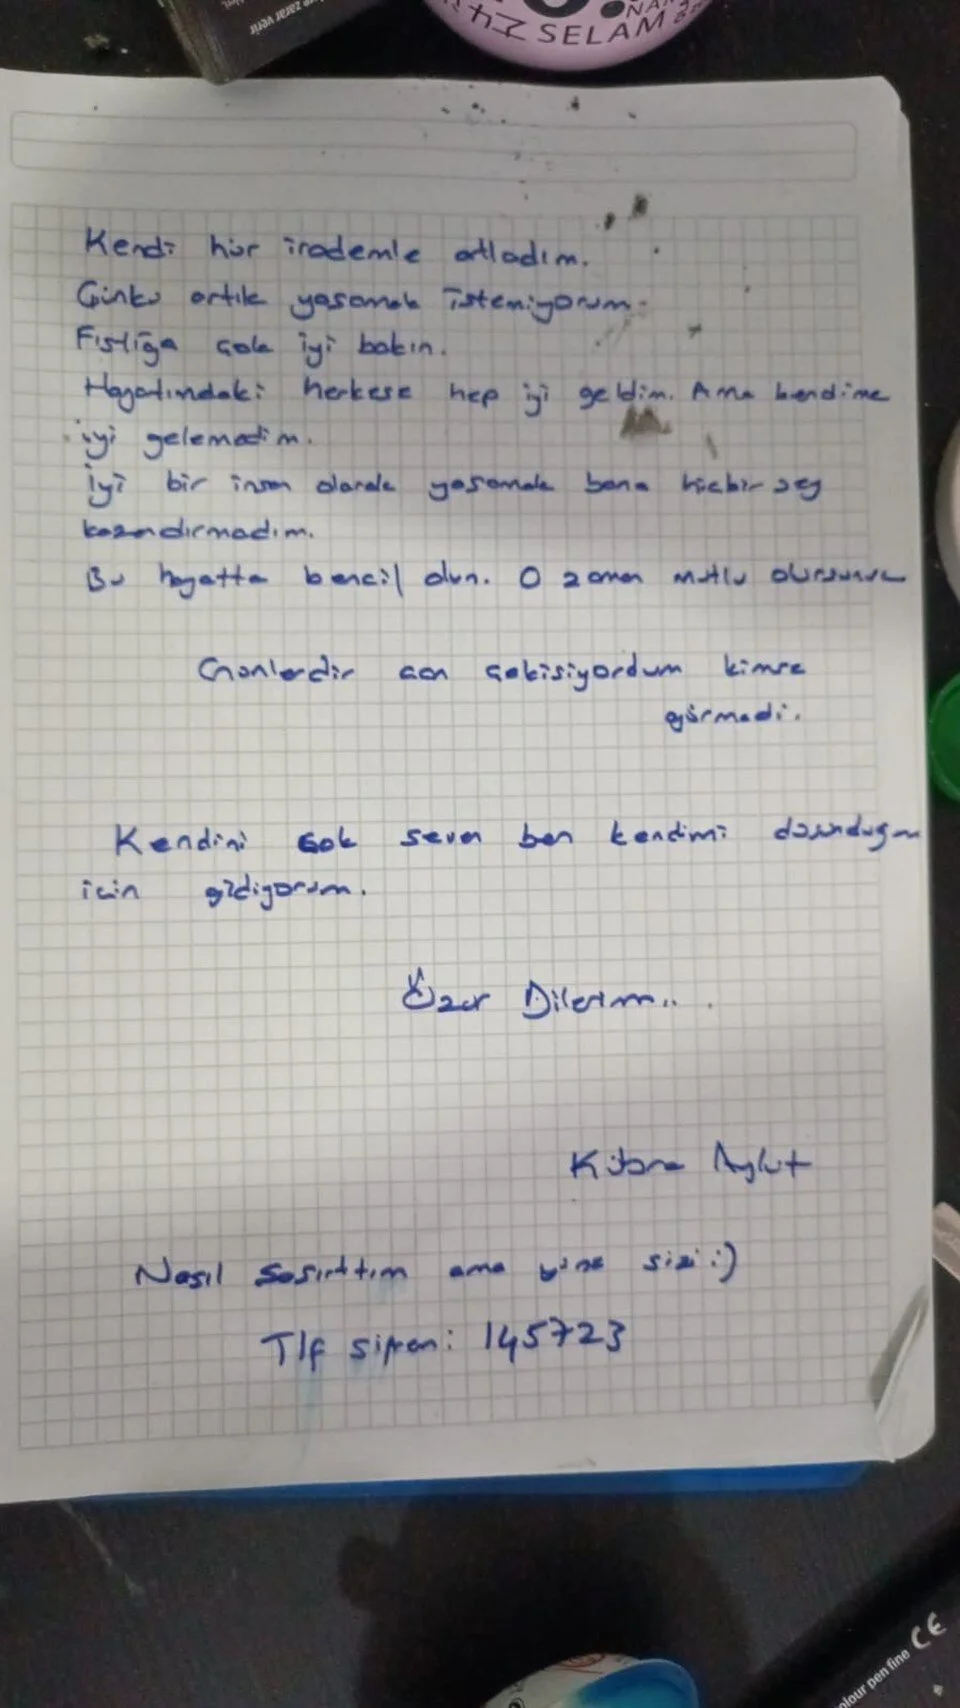 zarar verir
SELAM
Kendi hür irademle atladım.
Çünkü artık yaşamak istemiyorum.
Fıstığa çok iyi bakın.
Hayatımdaki herkese hep iyi geldim. Ama kendime
iyi gelemedim.
İyi bir insan olarak yaşamak bana hiçbir şey
kazandırmadım.
Bu hayatta bencil olun. O zaman mutlu olursunuz
Günlerdir can çekişiyordum kimse
görmedi.
Kendini çok seven ben kendimi düşündüğüm
için gidiyorum.
Özür Dilerim...
Nasıl Şaşırttım ama yine sizi :)
Tlf şifrem: 145723
colour pen fine CE